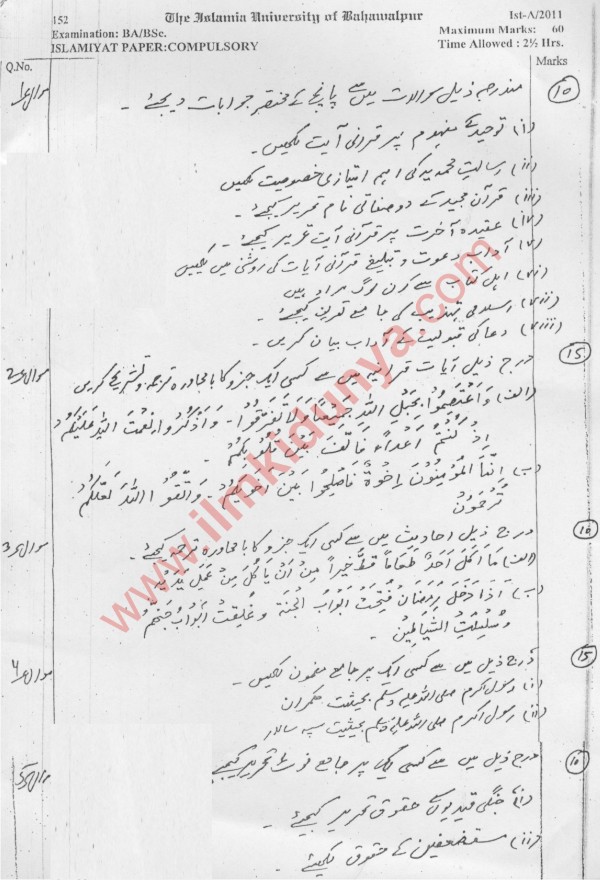 152 The Islamia University of Bahawalpur Ist-A/2011
Examination: BA/BSc. Maximum Marks: 60
ISLAMIYAT PAPER:COMPULSORY Time Allowed : 2½ Hrs.
Q.No. Marks
سوال 1 مندرجہ ذیل سوالات میں سے پانچ کے مختصر جوابات دیجئے ۔ 10
(i) توحید کے مفہوم پر قرآنی آیت لکھیں ۔
(ii) رسالت محمدیہ کی اہم امتیازی خصوصیت لکھیں
(iii) قرآن مجید کے دو صفاتی نام تحریر کیجئے ۔
(iv) عقیدہ آخرت پر قرآنی آیت تحریر کیجئے ۔
(v) آداب دعوت و تبلیغ قرآنی آیات کی روشنی میں لکھیں
(vi) اہل کتاب سے کون لوگ مراد ہیں
(vii) اسلامی تہذیب کی جامع تعریف کیجئے ۔
(viii) دعا کی قبولیت کے آداب بیان کریں ۔
سوال 2 درج ذیل آیات قرآنیہ میں سے کسی ایک جزو کا بامحاورہ ترجمہ و تشریح کریں 15
(الف) وَاعْتَصِمُوا بِحَبْلِ اللّٰهِ جَمِيْعًا وَلَا تَفَرَّقُوا ۔ وَاذْكُرُوا نِعْمَتَ اللّٰهِ عَلَيْكُمْ
اِذْ كُنْتُمْ اَعْدَاءً فَاَلَّفَ بَيْنَ قُلُوْبِكُمْ
(ب) اِنَّمَا الْمُؤْمِنُوْنَ اِخْوَةٌ فَاَصْلِحُوا بَيْنَ اَخَوَيْكُمْ ۔ وَاتَّقُوا اللّٰهَ لَعَلَّكُمْ
تُرْحَمُوْنَ
سوال 3 درج ذیل احادیث میں سے کسی ایک جزو کا بامحاورہ ترجمہ کیجئے ۔ 10
(الف) مَا اَكَلَ اَحَدٌ طَعَامًا قَطُّ خَيْراً مِنْ اَنْ يَاكُلَ مِنْ عَمَلِ يَدَيْهِ
(ب) اِذَا دَخَلَ رَمَضَانُ فُتِحَتْ اَبْوَابُ الْجَنَّةِ وَ غُلِقَتْ اَبْوَابُ جَهَنَّمَ
وَ سُلْسِلَتِ الشَّيَاطِيْنُ ۔
سوال 4 درج ذیل میں سے کسی ایک پر جامع مضمون لکھیں ۔ 15
(i) رسول اکرم صلی اللہ علیہ وسلم بحیثیت حکمران
(ii) رسول اکرم صلی اللہ علیہ وسلم بحیثیت سپہ سالار
سوال 5 درج ذیل میں سے کسی ایک پر جامع نوٹ تحریر کیجئے 10
(i) جنگی قیدیوں کے حقوق تحریر کیجئے ۔
(ii) مستضعفین کے حقوق لکھیئے ۔
www.ilmkidunya.com